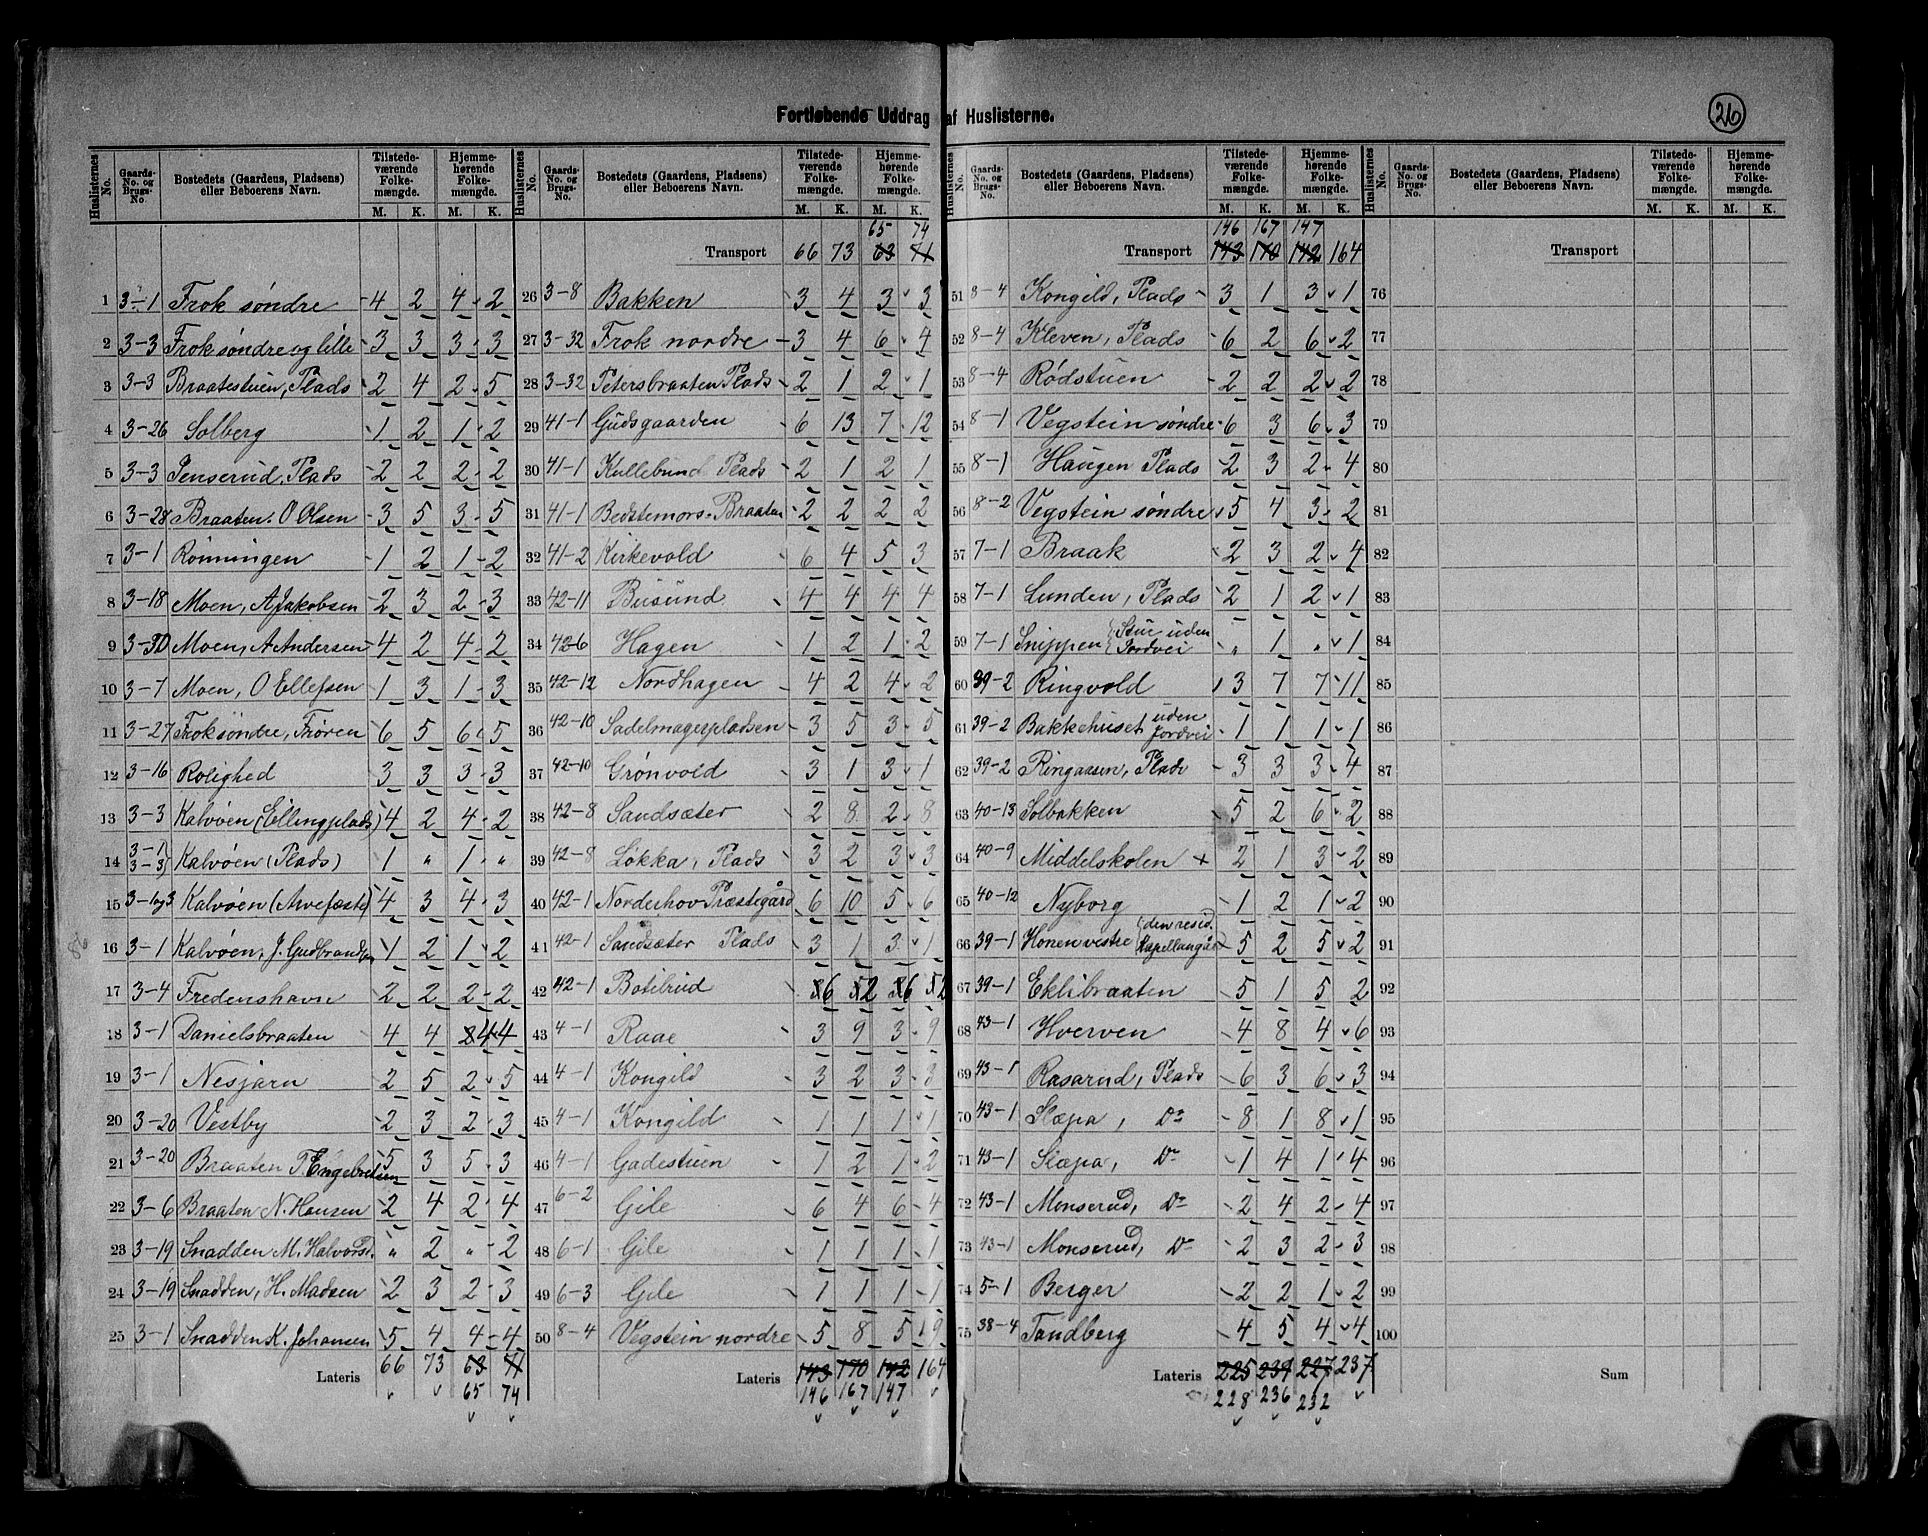 Fortløbende Uddrag af Huslisterne.
26
Huslisternes No. | Gaards-No. og Brugs-No | Bostedets (Gaardens, Pladsens) eller Beboerens Navn. | Tilstedeværende Folkemængde. M. K. | Hjemmehørende Folkemængde. M. K.
1 3-1 Frok søndre 4 2 4 2
2 3-3 Frok søndre og lille 3 3 3 3
3 3-3 Braatestuen, Plads 2 4 2 5
4 3-26 Solberg 1 2 1 2
5 3-3 Jenserud, Plads 2 2 2 2
6 3-28 Braaten. O Olsen 3 5 3 5
7 3-1 Rønningen 1 2 1 2
8 3-18 Moen, A Jakobsen 2 3 2 3
9 3-30 Moen, A Andersen 4 2 4 2
10 3-7 Moen, O Ellefsen 1 3 1 3
11 3-27 Frok søndre, Frøren 6 5 6 5
12 3-16 Rolighed 3 3 3 3
13 3-3 Kalvøen (Ellingplads) 4 2 4 2
14 3-1 3-3 Kalvøen (Plads) 1 " 1 "
15 3-1 og 3 Kalvøen (Arvefæste) 4 3 4 3
16 3-1 Kalvøen, J. Gudbrandsen 1 2 1 2
17 3-4 Fredenshavn 2 2 2 2
18 3-1 Danielsbraaten 4 4 4 4
19 3-1 Nesjarn 2 5 2 5
20 3-20 Vestby 2 3 2 3
21 3-20 Braaten T Engebretsen 5 3 5 3
22 3-6 Braaten N. Hansen 2 4 2 4
23 3-19 Snadden M. Halvorsd. " 2 " 2
24 3-19 Snadden, H. Madsen 2 3 2 3
25 3-1 Snadden K. Johansen 5 4 4 4
Lateris 66 73 63 71
65 74
Huslisternes No. | Gaards-No. og Brugs-No. | Bostedets (Gaardens, Pladsens) eller Beboerens Navn. | Tilstedeværende Folkemængde. M. K. | Hjemmehørende Folkemængde. M. K.
65 74
Transport 66 73 63 71
26 3-8 Bakken 3 4 3 3
27 3-32 Frok nordre 3 4 6 4
28 3-32 Petersbraaten Plads 2 1 2 1
29 41-1 Gudsgaarden 6 13 7 12
30 41-1 Kullebund Plads 2 1 2 1
31 41-1 Bedstemors-Braaten 2 2 2 2
32 41-2 Kirkevold 6 4 5 3
33 42-11 Busund 4 4 4 4
34 42-6 Hagen 1 2 1 2
35 42-12 Nordhagen 4 2 4 2
36 42-10 Sadelmagerpladsen 3 5 3 5
37 42-10 Grønvold 3 1 3 1
38 42-8 Sandsæter 2 8 2 8
39 42-8 Løkka, Plads 3 2 3 3
40 42-1 Norderhov Præstegård 6 10 5 6
41 42-1 Sandsæter Plads 3 1 3 1
42 42-1 Botilrud 6 2 6 2
43 4-1 Raae 3 9 3 9
44 4-1 Kongild 3 2 3 3
45 4-1 Kongild 1 1 1 1
46 4-1 Gadestuen 1 2 1 2
47 6-2 Gile 6 4 6 4
48 6-1 Gile 1 1 1 1
49 6-3 Gile 1 1 1 1
50 8-4 Vegstein nordre 5 8 5 9
Lateris 143 170 142 164
146 167 147
Huslisternes No. | Gaards-No. og Brugs-No. | Bostedets (Gaardens, Pladsens) eller Beboerens Navn. | Tilstedeværende Folkemængde. M. K. | Hjemmehørende Folkemængde. M. K.
146 167 147
Transport 143 170 142 164
51 8-4 Kongild, Plads 3 1 3 1
52 8-4 Kleven, Plads 6 2 6 2
53 8-4 Rødstuen 2 2 2 2
54 8-1 Vegstein søndre 6 3 6 3
55 8-1 Haugen Plads 2 3 2 4
56 8-2 Vegstein søndre 5 4 3 2
57 7-1 Braak 2 3 2 4
58 7-1 Lunden, Plads 2 1 2 1
59 7-1 Snippen (Stue uden Jordvei " 1 " 1
60 39-2 Ringvold 3 7 7 11
61 39-2 Bakkehuset uden Jordvei 1 1 1 1
62 39-2 Ringaasen, Plads 3 3 3 4
63 40-13 Solbakken 5 2 6 2
64 40-9 Middelskolen + 2 1 3 2
65 40-12 Nyborg 1 2 1 2
66 39-1 Hønen vestre (den resid. Kapellangård) 5 2 5 2
67 39-1 Eklibraaten 5 1 5 2
68 43-1 Hverven 4 8 4 6
69 43-1 Rasarud, Plads 6 3 6 3
70 43-1 Slæpa, Do 8 1 8 1
71 43-1 Slæpa, Do 1 4 1 4
72 43-1 Monserud, Do 2 4 2 4
73 43-1 Monserud, Do 2 3 2 3
74 5-1 Berger 2 2 1 2
75 38-4 Tandberg 4 5 4 4
Lateris 225 239 227 237
228 236 232
Huslisternes No. | Gaards-No. og Brugs-No. | Bostedets (Gaardens, Pladsens) eller Beboerens Navn. | Tilstedeværende Folkemængde. M. K. | Hjemmehørende Folkemængde. M. K.
Transport
76
77
78
79
80
81
82
83
84
85
86
87
88
89
90
91
92
93
94
95
96
97
98
99
100
Sum